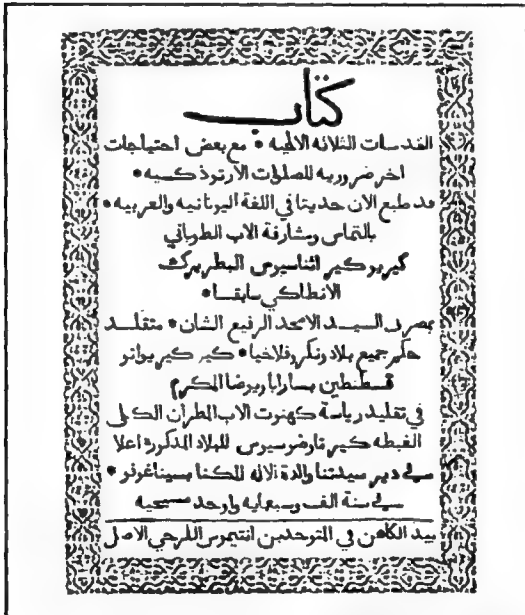 كتاب
القدسات الثلاثه الالهيه * مع بعض احتياجات
اخر ضروريه للصلوات الارتوذكسيه *
قد طبع الان حديثا في اللغة اليونانيه والعربيه *
بالتماس ومشارفة الاب الطوباني
كيريو كير اثناسيوس البطريرك
الانطاكي سابقا *
بمصرف السيد الامجد الرفيع الشان * متقلد
حكم جميع بلاد ونكروفلاخيا * كير كير يوانو
قسطنطين بسارابا ويوضا المكرم
في تقليد رياسة كهنوت الاب المطران الكلي
الغبطه كير تاوضوسيوس للبلاد المذكورة اعلا
في دير سيدتنا والدة الاله المكنا بسيناغوفو *
في سنة الف وسبعمايه واوحد مسيحيه
بيد الكاهن في المتوحدين انتيموس الكرجي الاصل